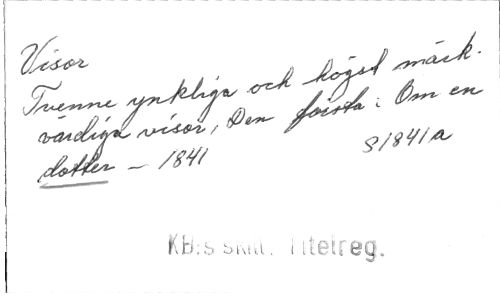 Visor
Tvenne ynkliga och högst märk-
värdiga visor, Den första: Om en
dotter - 1841 S1841a
KB:s skill. Titelreg.